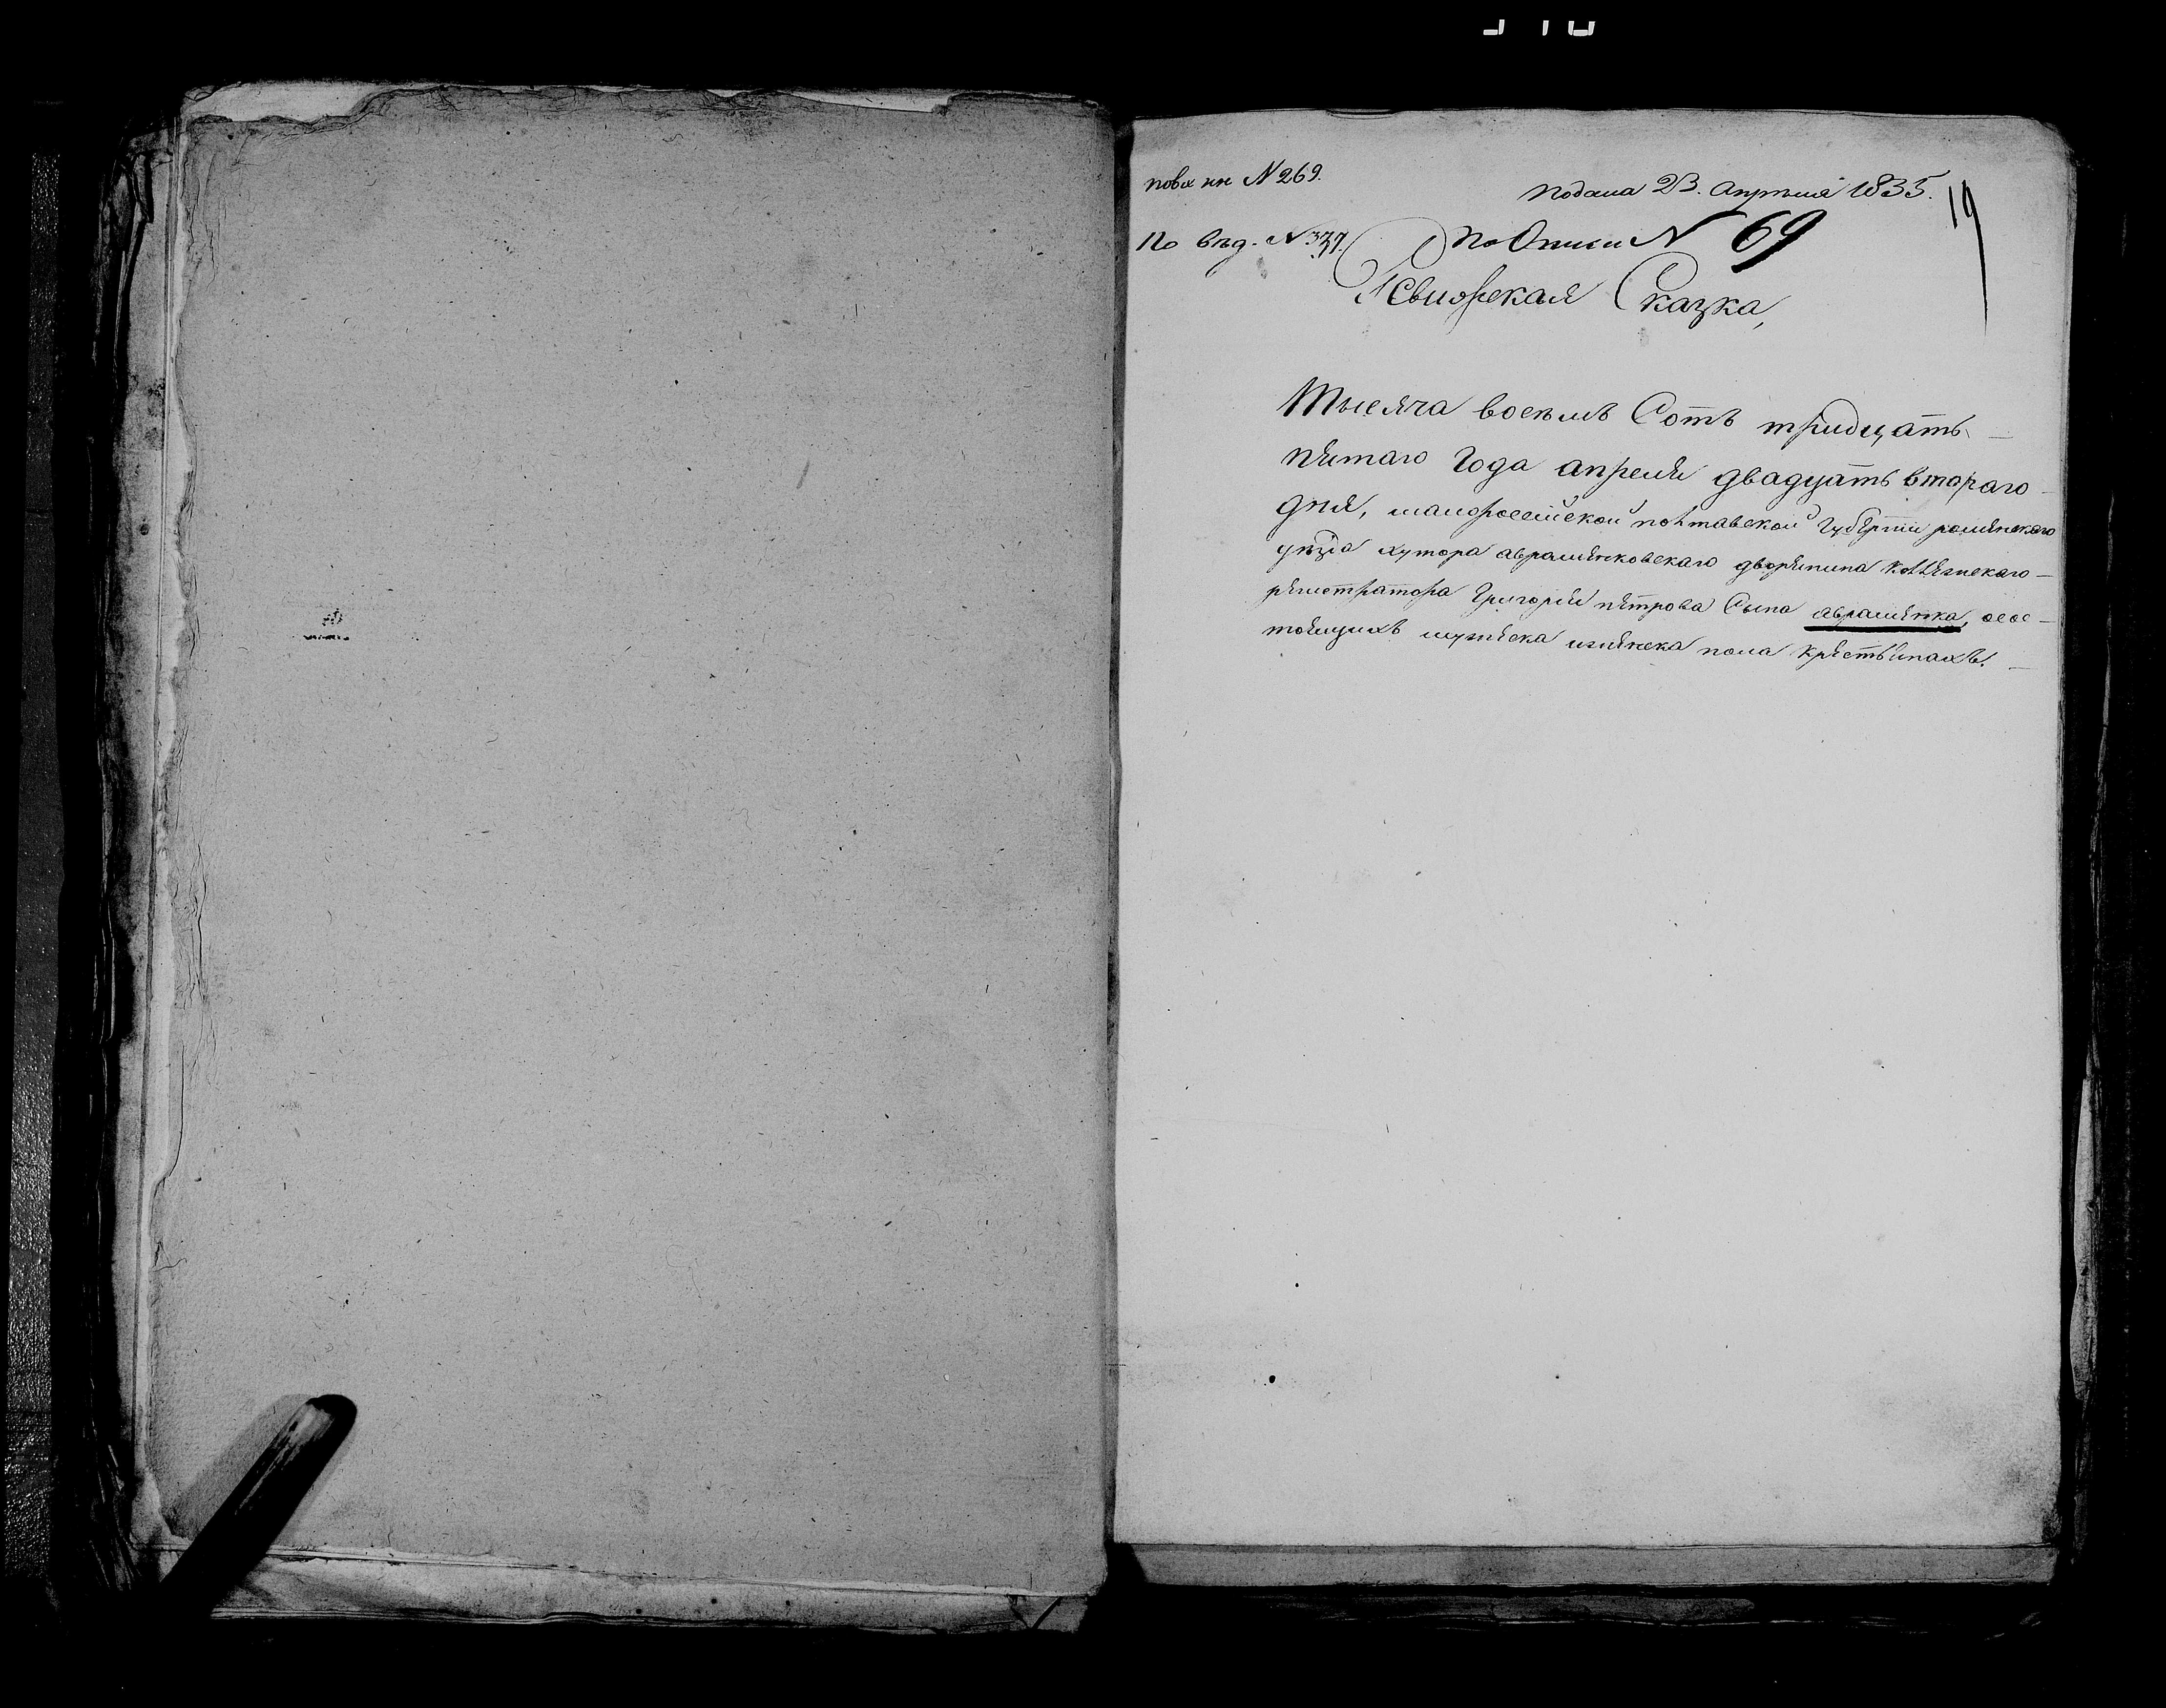 по вх кн N 269.
подана 23. Апрѣля 1835.
19
по вѣд. N 337.
по Описи N 69
Ревижская Сказка,
Тысяча восемь Сотъ тридцать
пятаго Года апреля двадцать втораго
дня, малороссийской полтавской Губернии роменскаго
уезда хутора авраменковскаго дворянина коллежскаго
регистратора Григория петрова Сына авраменка, осос
тоящихъ мужеска иженска пола крестьянахъ.